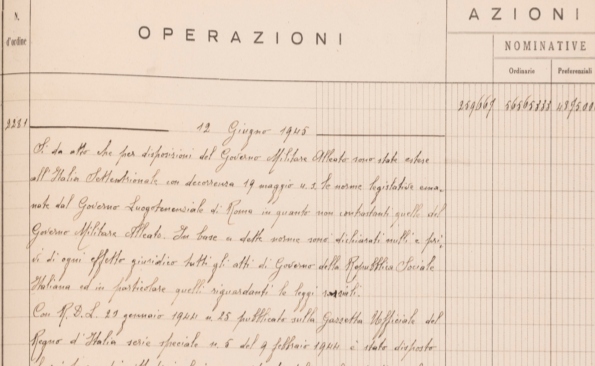 N.
d'ordine
OPERAZIONI
AZIONI
NOMINATIVE
Ordinarie
Preferenziali
259667 56565838 4895.00
2251
12 Giugno 1945
Si da atto che per disposizioni del Governo Militare Alleato sono state estese
all'Italia Settentrionale con decorrenza 19 maggio u.s. le norme legislative ema-
nate dal Governo Luogotenenziale di Roma in quanto non contrastanti quelle del
Governo Militare Alleato. In base a dette norme sono dichiarati nulli e pri,
vi di ogni effetto giuridico tutti gli atti di Governo della Repubblica Sociale
Italiana ed in particolare quelli riguardanti le leggi razziali.
Con R.D.L. gennaio 1944 n. 25 pubblicato sulla Gazzetta Ufficiale del
Regno d'Italia serie speciale n. 5 del 9 febbraio 1944 è stato disposto